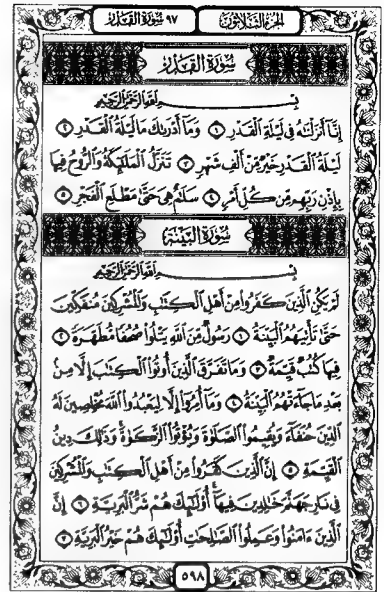 الجزء الثلاثون
٩٧ سورة القدر
سورة القدر
بسم الله الرحمن الرحيم
إِنَّا أَنزَلْنَٰهُ فِي لَيْلَةِ ٱلْقَدْرِ ١ وَمَآ أَدْرَىٰكَ مَا لَيْلَةُ ٱلْقَدْرِ ٢
لَيْلَةُ ٱلْقَدْرِ خَيْرٌ مِّنْ أَلْفِ شَهْرٍ ٣ تَنَزَّلُ ٱلْمَلَٰٓئِكَةُ وَٱلرُّوحُ فِيهَا
بِإِذْنِ رَبِّهِم مِّن كُلِّ أَمْرٍ ٤ سَلَٰمٌ هِيَ حَتَّىٰ مَطْلَعِ ٱلْفَجْرِ ٥
سورة البينة
بسم الله الرحمن الرحيم
لَمْ يَكُنِ ٱلَّذِينَ كَفَرُوا۟ مِنْ أَهْلِ ٱلْكِتَٰبِ وَٱلْمُشْرِكِينَ مُنفَكِّينَ
حَتَّىٰ تَأْتِيَهُمُ ٱلْبَيِّنَةُ ١ رَسُولٌ مِّنَ ٱللَّهِ يَتْلُوا۟ صُحُفًا مُّطَهَّرَةً ٢
فِيهَا كُتُبٌ قَيِّمَةٌ ٣ وَمَا تَفَرَّقَ ٱلَّذِينَ أُوتُوا۟ ٱلْكِتَٰبَ إِلَّا مِنۢ
بَعْدِ مَا جَآءَتْهُمُ ٱلْبَيِّنَةُ ٤ وَمَآ أُمِرُوٓا۟ إِلَّا لِيَعْبُدُوا۟ ٱللَّهَ مُخْلِصِينَ لَهُ
ٱلدِّينَ حُنَفَآءَ وَيُقِيمُوا۟ ٱلصَّلَوٰةَ وَيُؤْتُوا۟ ٱلزَّكَوٰةَ وَذَٰلِكَ دِينُ
ٱلْقَيِّمَةِ ٥ إِنَّ ٱلَّذِينَ كَفَرُوا۟ مِنْ أَهْلِ ٱلْكِتَٰبِ وَٱلْمُشْرِكِينَ
فِي نَارِ جَهَنَّمَ خَٰلِدِينَ فِيهَآ أُو۟لَٰٓئِكَ هُمْ شَرُّ ٱلْبَرِيَّةِ ٦ إِنَّ
ٱلَّذِينَ ءَامَنُوا۟ وَعَمِلُوا۟ ٱلصَّٰلِحَٰتِ أُو۟لَٰٓئِكَ هُمْ خَيْرُ ٱلْبَرِيَّةِ ٧
٥٩٨